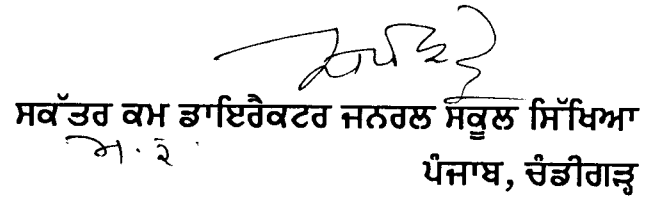 ਸਕੱਤਰ ਕਮ ਡਾਇਰੈਕਟਰ ਜਨਰਲ ਸਕੂਲ ਸਿੱਖਿਆ
ਪੰਜਾਬ, ਚੰਡੀਗੜ੍ਹ